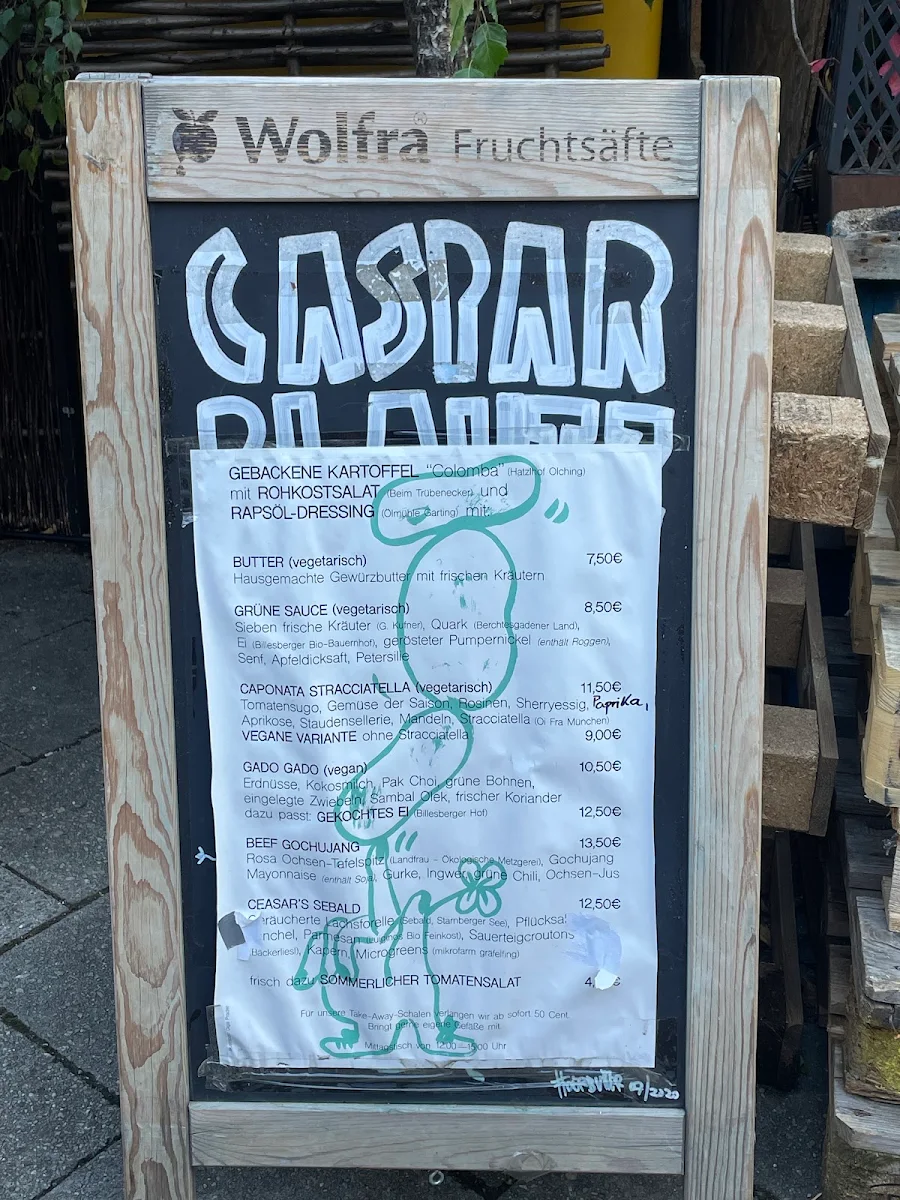 Wolfra® Fruchtsäfte
CASPAR
PLAUTZ
GEBACKENE KARTOFFEL "Colomba" (Hatzlhof Olching)
mit ROHKOSTSALAT (Beim Trübenecker) und
RAPSÖL-DRESSING (Ölmühle Garting) mit:
BUTTER (vegetarisch) 7,50€
Hausgemachte Gewürzbutter mit frischen Kräutern
GRÜNE SAUCE (vegetarisch) 8,50€
Sieben frische Kräuter (G. Kufner), Quark (Berchtesgadener Land),
Ei (Billesberger Bio-Bauernhof), gerösteter Pumpernickel (enthält Roggen),
Senf, Apfeldicksaft, Petersilie
CAPONATA STRACCIATELLA (vegetarisch) 11,50€
Tomatensugo, Gemüse der Saison, Rosinen, Sherryessig, Paprika,
Aprikose, Staudensellerie, Mandeln, Stracciatella (Oi Fra München)
VEGANE VARIANTE ohne Stracciatella 9,00€
GADO GADO (vegan) 10,50€
Erdnüsse, Kokosmilch, Pak Choi, grüne Bohnen,
eingelegte Zwiebeln, Sambal Olek, frischer Koriander
dazu passt: GEKOCHTES EI (Billesberger Hof) 12,50€
BEEF GOCHUJANG 13,50€
Rosa Ochsen-Tafelspitz (Landfrau - Ökologische Metzgerei), Gochujang
Mayonnaise (enthält Soja), Gurke, Ingwer, grüne Chili, Ochsen-Jus
CEASAR'S SEBALD 12,50€
Geräucherte Lachsforelle (Sebald, Starnberger See), Pflücksa
nchel, Parmesan Bio Feinkost), Sauerteigcroutons
(Bäckerliesl), Kapern, Microgreens (mikrofarm gräfelfing)
frisch dazu SOMMERLICHER TOMATENSALAT 4, €
Für unsere Take-Away-Schalen verlangen wir ab sofort 50 Cent.
Bringt gerne eigene Gefäße mit.
Mittagstisch von 12:00 – 15:00 Uhr
07/2020